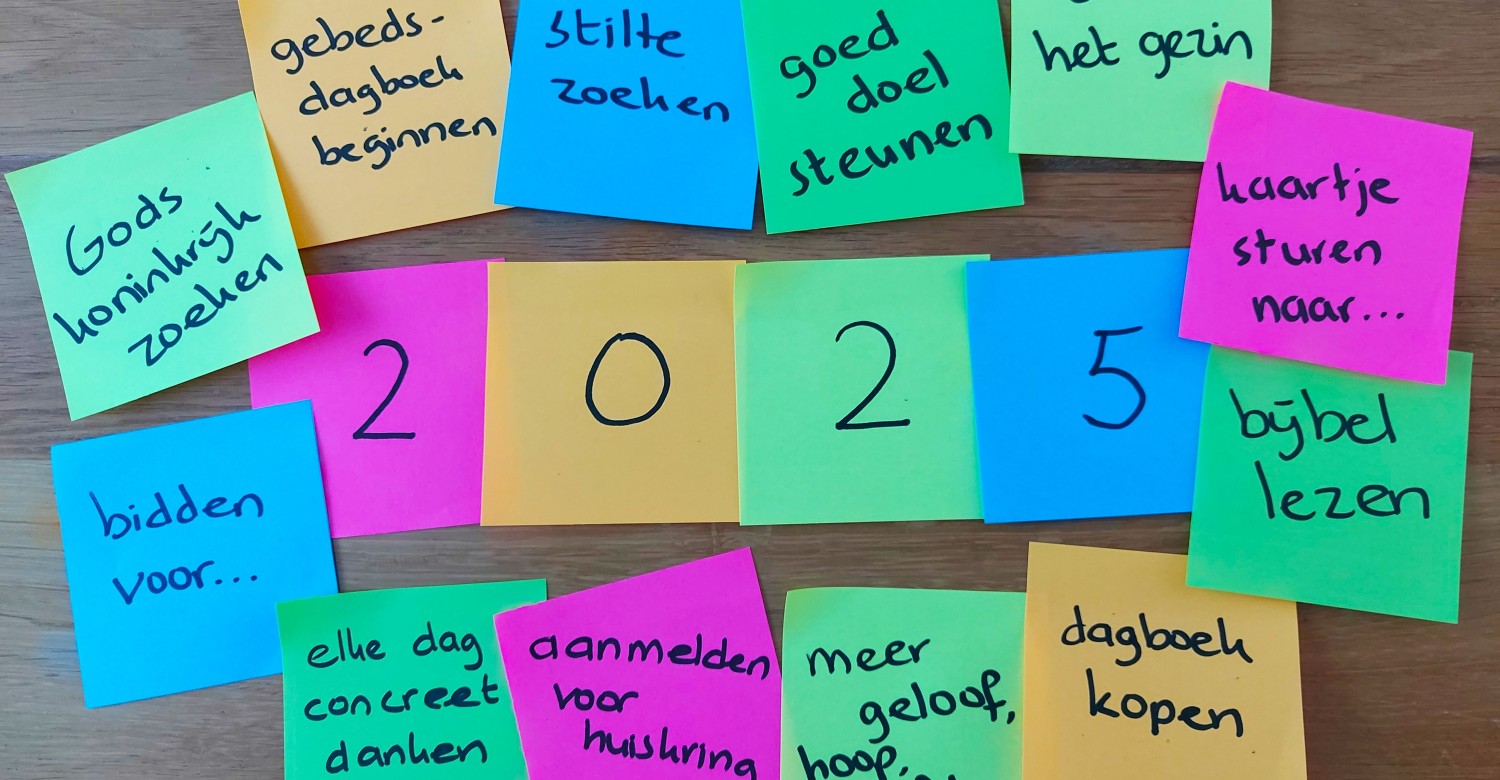 gebeds-
dagboek
beginnen
stilte
zoeken
goed
doel
steunen
het gezin
Gods
koninkrijk
zoeken
kaartje
sturen
naar...
2 0 2 5
bijbel
lezen
bidden
voor...
elke dag
concreet
danken
aanmelden
voor
huiskring
meer
geloof,
hoop,
dagboek
kopen